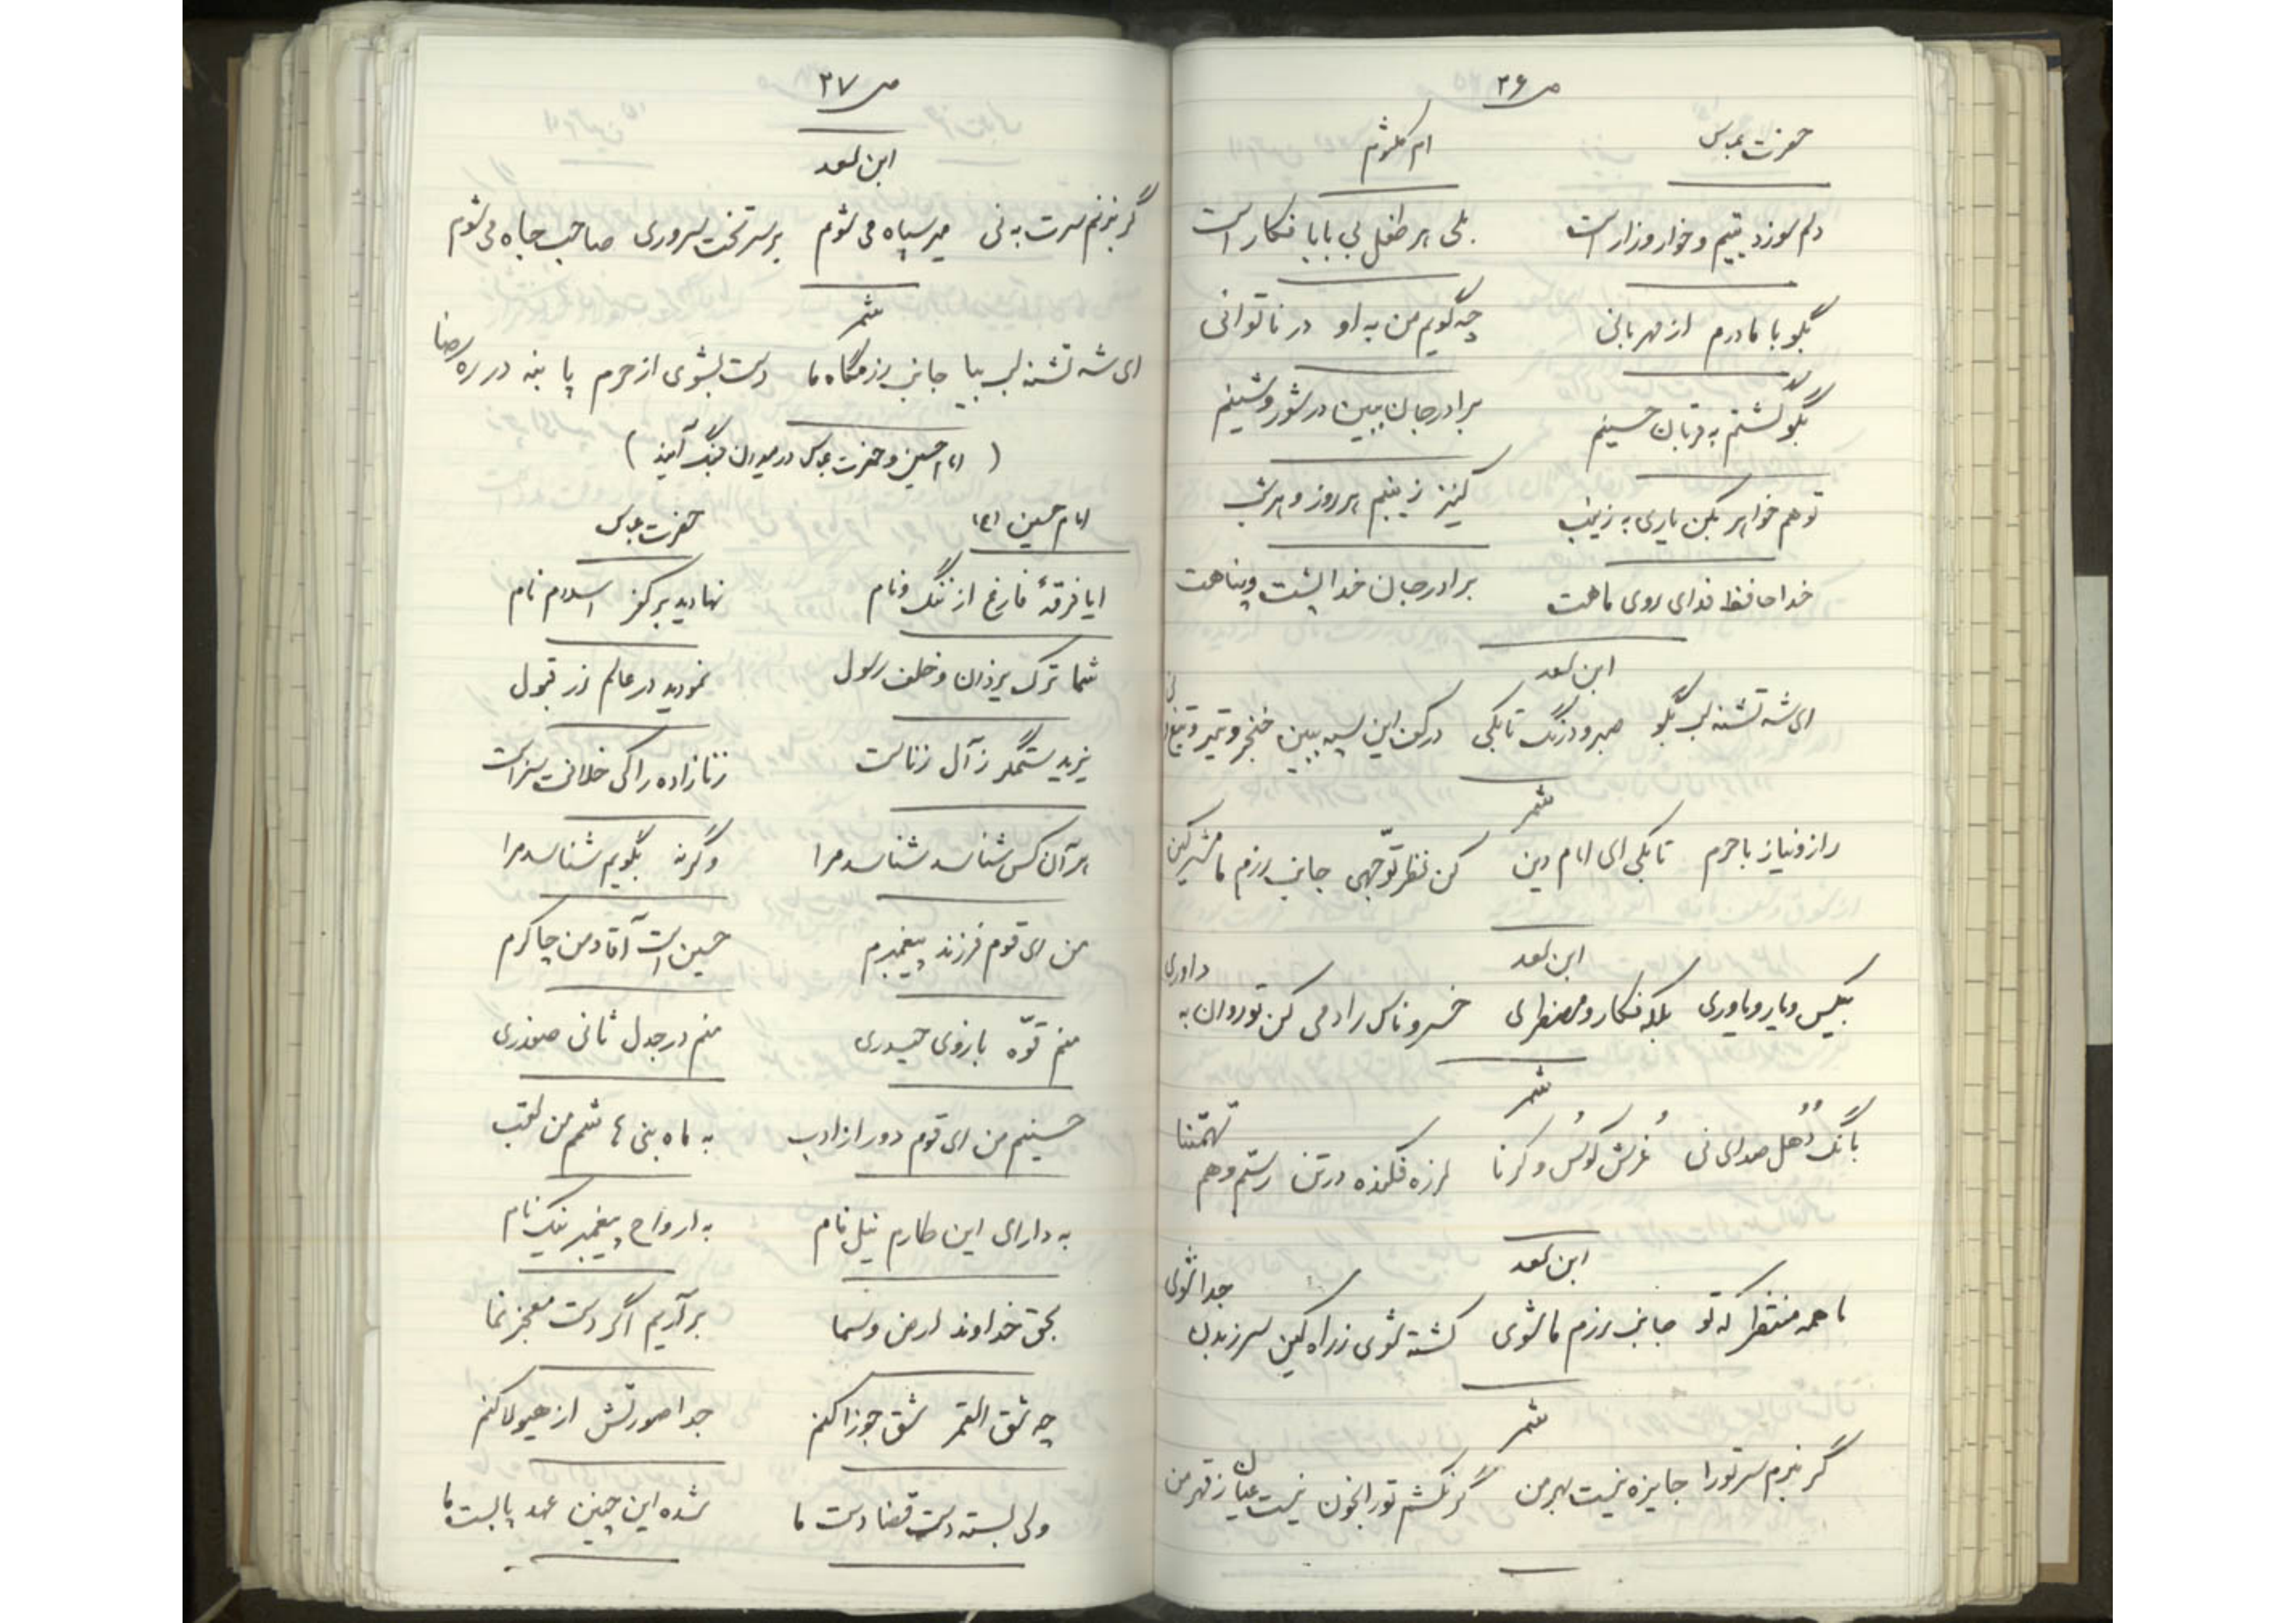 ص ۲۶
حضرت عباس    ام کلثوم
دلم سوزد یتیم و خوار و زار است    بلی هر طفل بی بابا فکار است
بگو با مادرم از مهربانی    چه گویم من به او در ناتوانی
بگو گشتم به قربان حسینم    برادر جان ببین در شور و شینم
تو هم خواهر بکن یاری به زینب    کنیز زینبم هر روز و هر شب
خدا حافظ فدای روی ماهت    برادر جان خدا پشت و پناهت
ابن سعد
ای شه تشنه لب بگو صبر و درنگ تا بکی    در کف این سپه ببین خنجر و تیر و تیغ
شمر
راز و نیاز با حرم تا بکی ای امام دین    کن نظر توّجهی جانب رزم مشرکین
ابن سعد
بیکس و یار و یاوری بلکه فکار و مضطری    خسرو ناس رادمی کن تو روان به داوری
شمر
بانگ دُهل صدای نی غرش کوُس و کرنا    لرزه فکنده در تن رستم و هم تهمتنا
ابن سعد
ما همه منتظر که تو جانب رزم ما شوی    کشته شوی ز راه کین سر ز بدن جدا شوی
شمر
گر نبرم سر تو را جایزه نیست بهر من    گر نکشم تو را بخون نیست عیان ز قهر من
ص ۲۷
ابن سعد
گر بزنم سرت به نی میر سپاه می شوم    بر سر تخت سروری صاحب جاه می شوم
شمر
ای شه تشنه لب بیا جانب رزمگاه ما    دست بشوی از حرم پا بنه در ره رضا
( امام حسین و حضرت عباس در میدان جنگ آیند )
امام حسین (ع)    حضرت عباس
ایا فرقهٔ فارغ از ننگ و نام    نهادید بر کفر اسلام نام
شما ترک یزدان و خلف رسول    نمودید در عالم زر قبول
یزید ستمگر ز آل زناست    زنازاده را کی خلافت سزاست
هر آن کس شناسد شناسد مرا    وگرنه بگویم شناسد مرا
من ای قوم فرزند پیغمبرم    حسین است آقا و من چاکرم
منم قوّه بازوی حیدری    منم در جدل ثانی صفدری
حسینم من ای قوم دور از ادب    به ماه بنی هاشمم من لقب
به دارای این طارم نیل فام    به ارواح پیغمبر نیک نام
بحق خداوند ارض و سما    برآریم اگر دست معجز نما
چه شق القمر شق جوزا کنم    جدا صورتش از هیولا کنم
ولی بسته دست قضا دست ما    شده این چنین عهد پابست ما